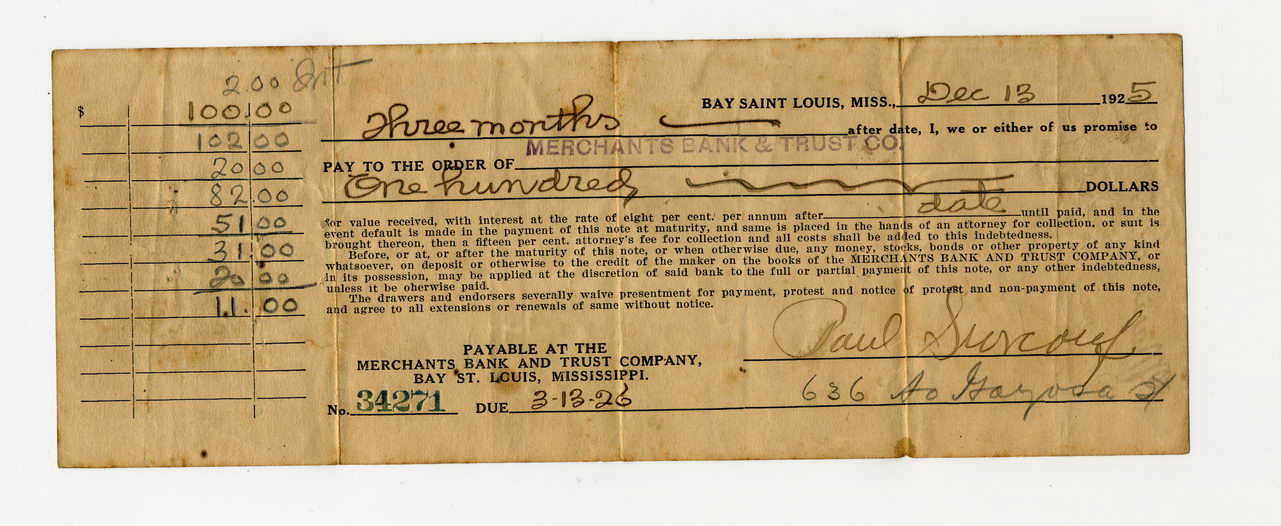 2.00 Int
$ 100.00
102 00
20 00
82.00
51 00
31.00
20.00
11.00
BAY SAINT LOUIS, MISS., Dec 13 1925
Three months after date, I, we or either of us promise to
PAY TO THE ORDER OF MERCHANTS BANK & TRUST CO.
One hundred DOLLARS
for value received, with interest at the rate of eight per cent. per annum after date until paid, and in the
event default is made in the payment of this note at maturity, and same is placed in the hands of an attorney for collection, or suit is
brought thereon, then a fifteen per cent. attorney's fee for collection and all costs shall be added to this indebtedness.
Before, or at, or after the maturity of this note, or when otherwise due, any money, stocks, bonds or other property of any kind
whatsoever, on deposit or otherwise to the credit of the maker on the books of the MERCHANTS BANK AND TRUST COMPANY, or
in its possession, may be applied at the discretion of said bank to the full or partial payment of this note, or any other indebtedness,
unless it be oherwise paid.
The drawers and endorsers severally waive presentment for payment, protest and notice of protest and non-payment of this note,
and agree to all extensions or renewals of same without notice.
Paul Surcouf
PAYABLE AT THE
MERCHANTS BANK AND TRUST COMPANY,
BAY ST. LOUIS, MISSISSIPPI.
636 So Gayosa St
No. 34271 DUE 3-13-26